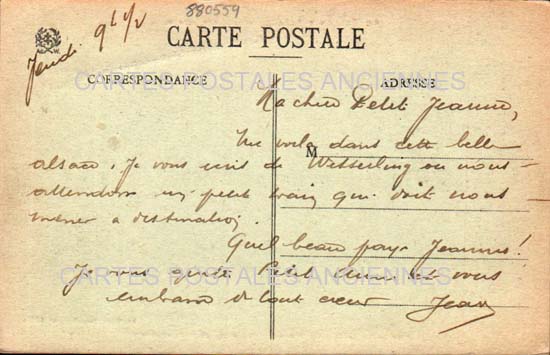 880559
Jeudi. 9h 1/2
CARTE POSTALE
CORRESPONDANCE
ADRESSE
CARTES POSTALES ANCIENNES
Ma chère Petit Jeanne,
M
Me voila dans cette belle
alsace. Je vous écris de Wesserling ou nous
attendons un petit train qui doit nous
mener a destination.
Quel beau pays Jeanne!
CARTES POSTALES ANCIENNES
Je vous quitte Petit et vous
embrasse de tout cœur Jean